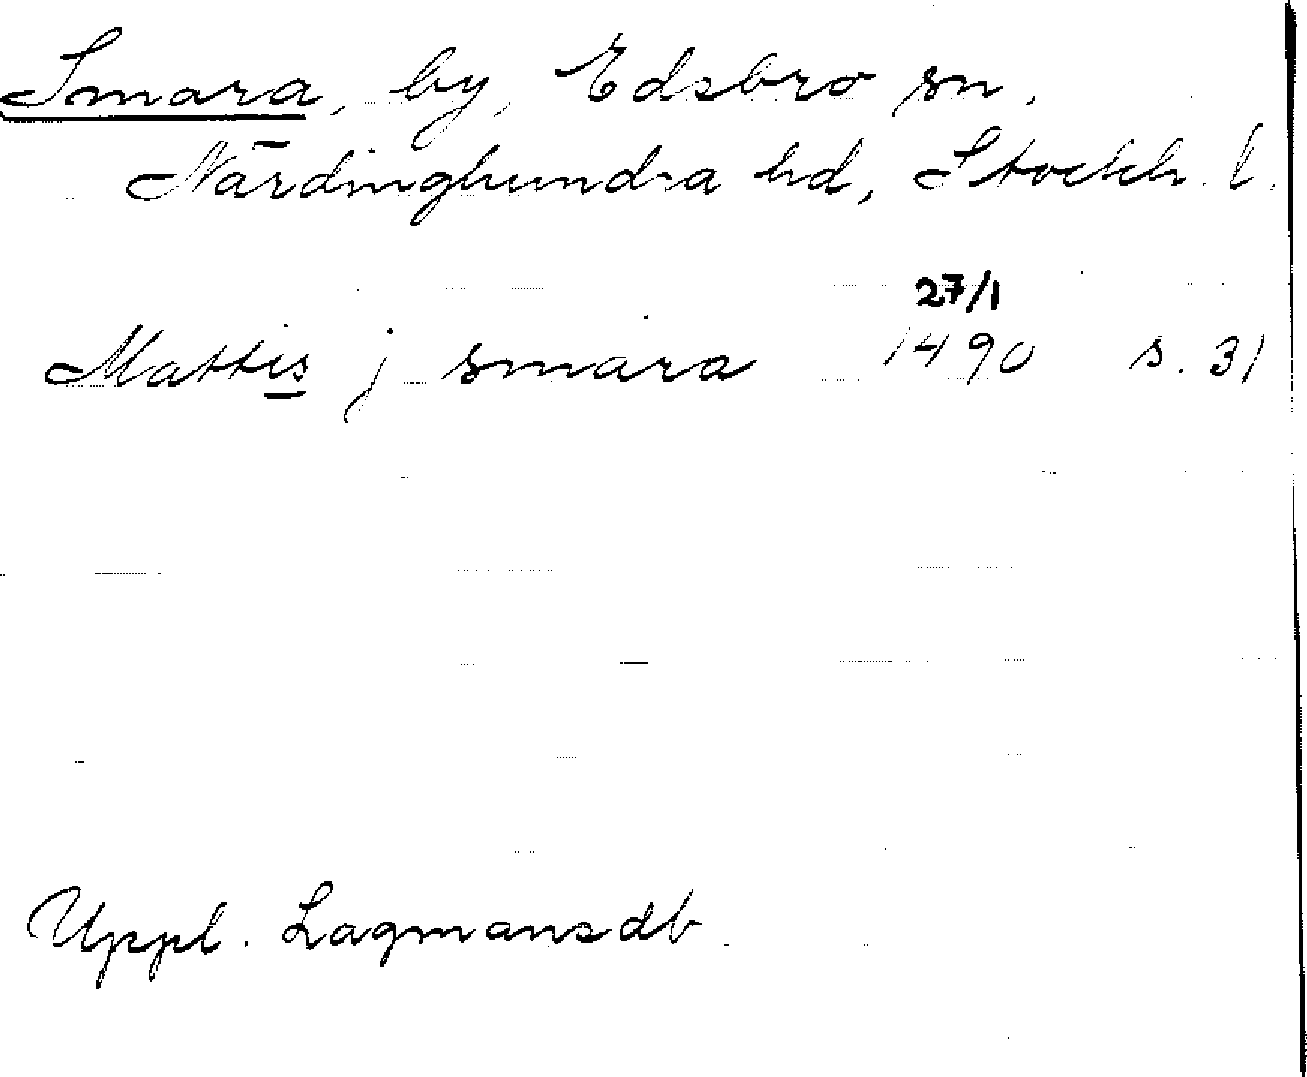 Smara, by, Edsbro sn.
Närdinghundra hd, Stockh. l.
27/1
Mattis j smara 1490 s. 31
Uppl. Lagmansdb.